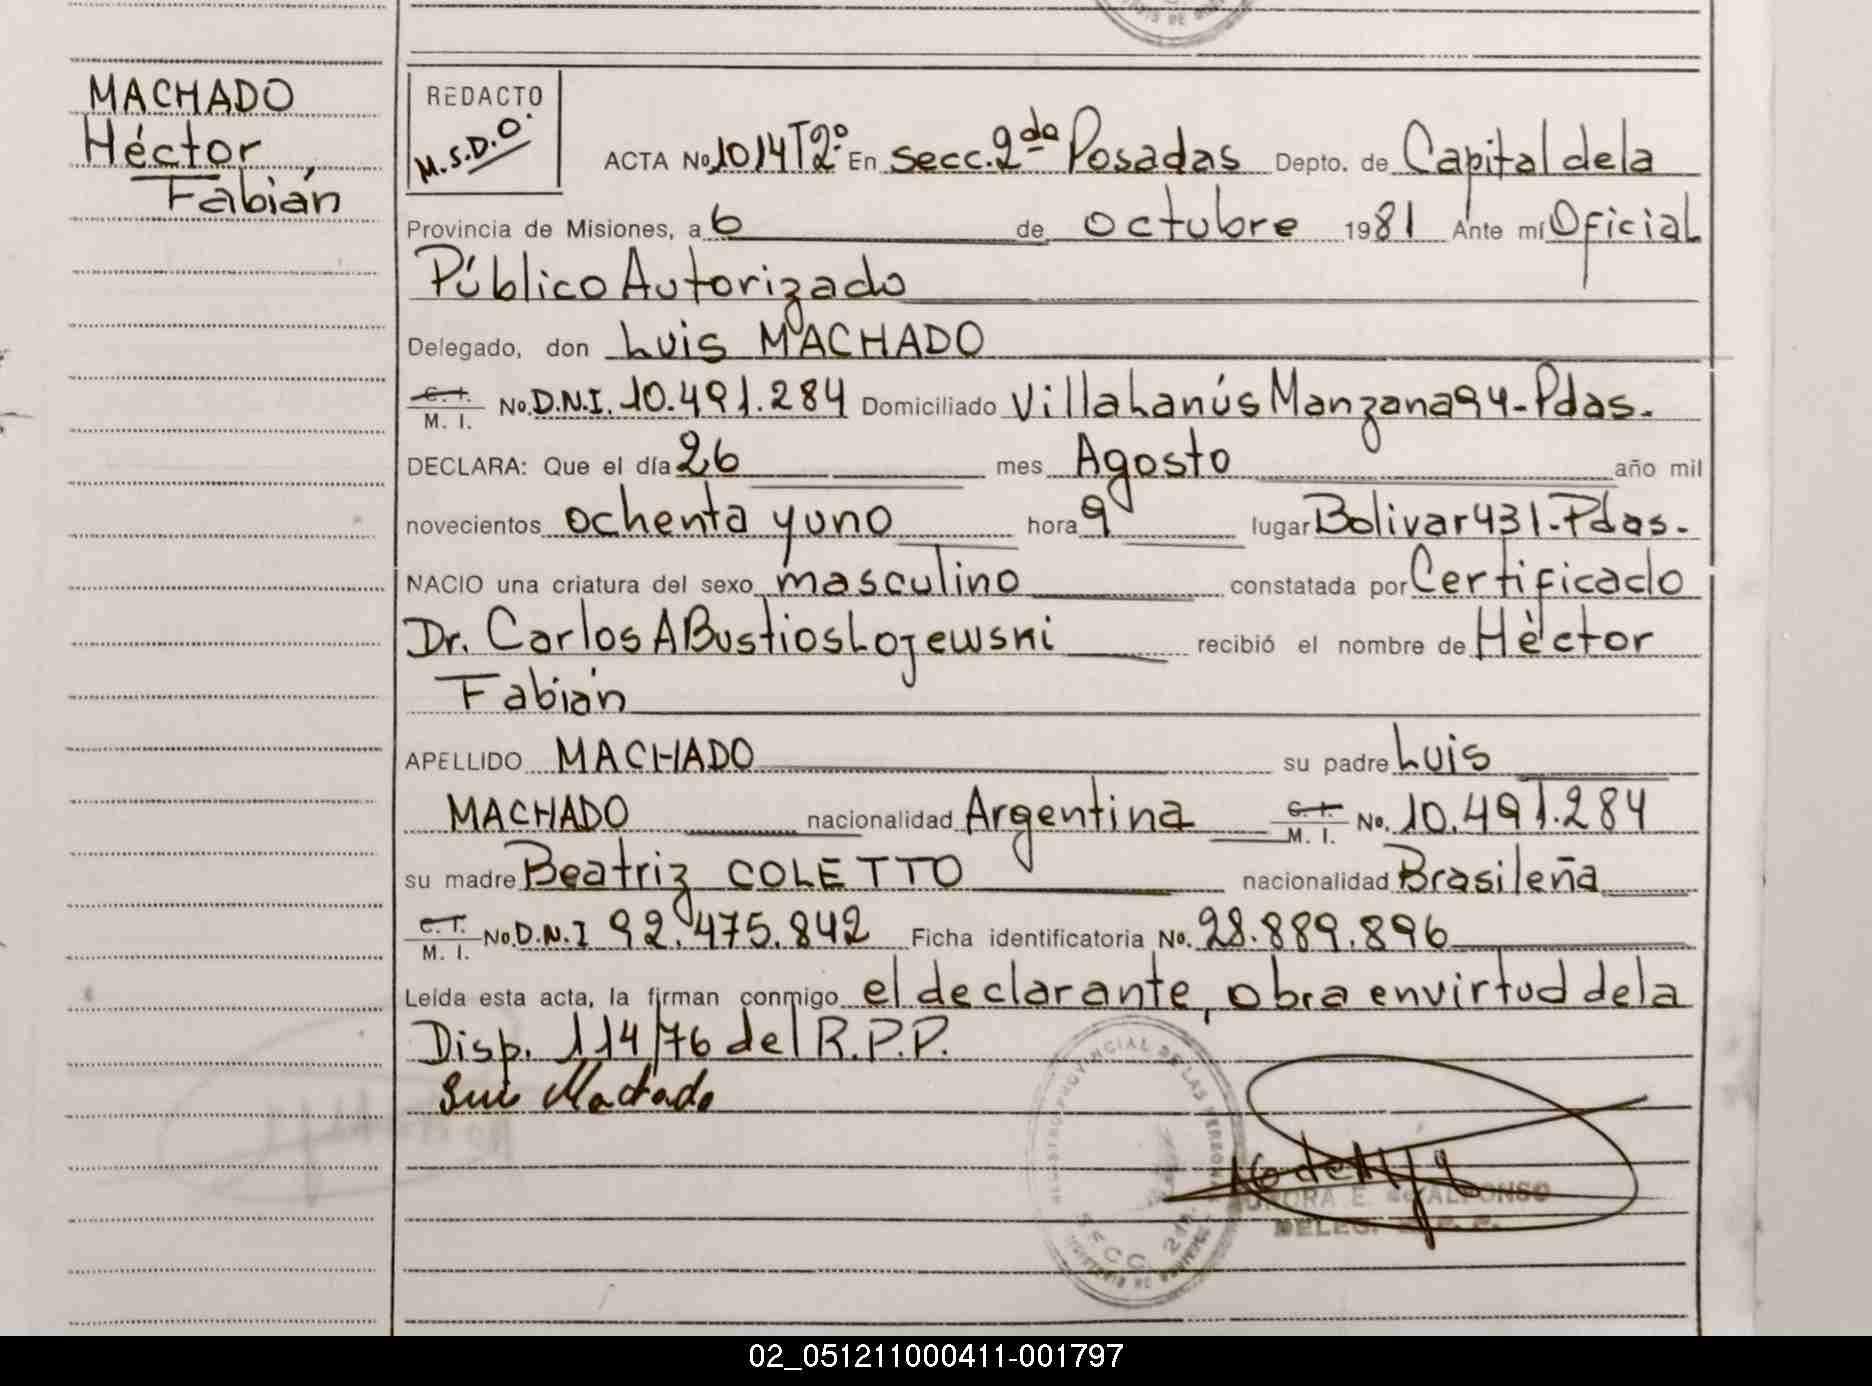 MACHADO
Héctor
Fabián
REDACTO
M.S.D.O.
ACTA No 1014 T2º En secc. 2da Posadas Depto. de Capital de la
Provincia de Misiones, a 6 de octubre 1981 Ante mí Oficial
Público Autorizado
Delegado, don Luis MACHADO
C.I. M. I. No. D.N.I. 10.491.284 Domiciliado Villa Lanús Manzana 94-Pdas.
DECLARA: Que el día 26 mes Agosto año mil
novecientos ochenta y uno hora 9 lugar Bolivar 431-Pdas-
NACIO una criatura del sexo masculino constatada por Certificado
Dr. Carlos A Bustios Lojewski recibió el nombre de Héctor
Fabián
APELLIDO MACHADO su padre Luis
MACHADO nacionalidad Argentina C.I. M. I. No. 10.491.284
su madre Beatriz COLETTO nacionalidad Brasileña
C.I. M. I. No. D.N.I 92.475.842 Ficha identificatoria No. 28.889.896
Leída esta acta, la firman conmigo el declarante, obra en virtud de la
Disp. 114/76 del R.P.P.
Luis Machado
REGISTRO PROVINCIAL DE LAS PERSONAS
SECC. 2da.
E. de ALFONSO
DELEG.
02_051211000411-001797